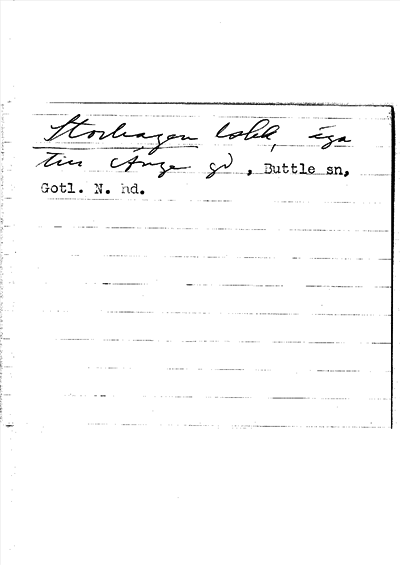 Storhagen lskl, äga
till Änge gd, Buttle sn,
Gotl. N. hd.